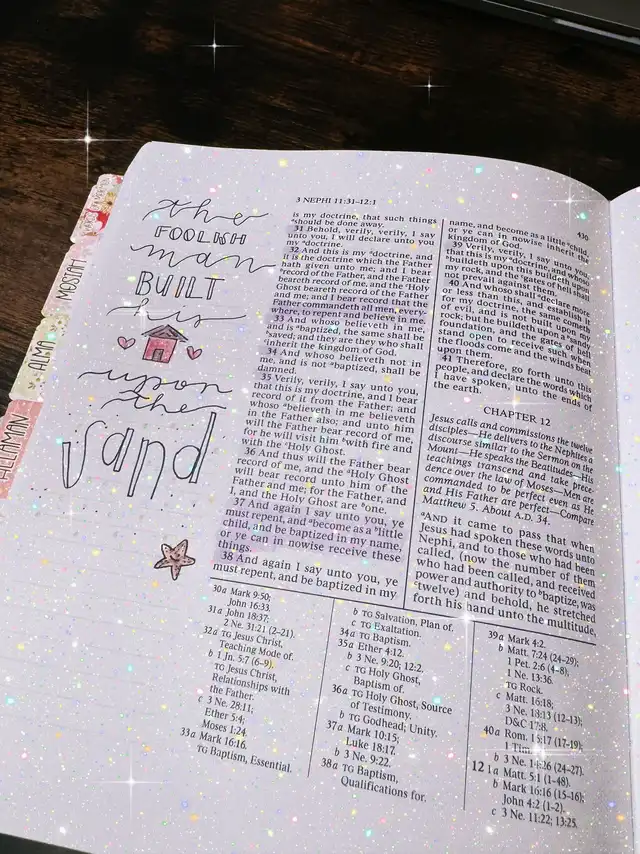 3 NEPHI 11:31–12:1
436
the
FOOLISH
man
BUILT
his
upon
the
sand
MOSIAH
ALMA
HELAMAN
is my doctrine, that such things
should be done away.
31 Behold, verily, verily, I say
unto you, I will declare unto you
my ᵃdoctrine.
32 And this is my ᵃdoctrine, and
it is the doctrine which the Father
hath given unto me; and I bear
ᵇrecord of the Father, and the Father
beareth record of me, and the ᶜHoly
Ghost beareth record of the Father
and me; and I bear record that the
Father commandeth all men, every-
where, to repent and believe in me.
33 And whoso believeth in me,
and is ᵃbaptized, the same shall be
ᵇsaved; and they are they who shall
ᶜinherit the kingdom of God.
34 And whoso believeth not in
me, and is not ᵃbaptized, shall be
damned.
35 Verily, verily, I say unto you,
that this is my doctrine, and I bear
record of it from the Father; and
whoso ᵃbelieveth in me believeth
in the Father also; and unto him
will the Father bear record of me,
for he will visit him ᵇwith fire and
with the ᶜHoly Ghost.
36 And thus will the Father bear
record of me, and the Holy Ghost
will bear record unto him of the
Father and me; for the Father, and
I, and the Holy Ghost are ᵇone.
37 And again I say unto you, ye
must repent, and ᵃbecome as a ᵇlittle
child, and be baptized in my name,
or ye can in nowise receive these
things.
38 And again I say unto you, ye
must repent, and be baptized in my
name, and become as a little ᵃchild
or ye can in nowise inherit the
kingdom of God.
39 Verily, verily, I say unto you,
that this is my doctrine, and whoso
buildeth upon this buildeth upon
my rock, and the gates of hell shall
not prevail against them.
40 And whoso shall declare more
or less than this, and establish it
for my doctrine, the same cometh
of evil, and is not built upon my
rock; but he buildeth upon a sandy
foundation, and the gates of hell
stand open to receive such when
the floods come and the winds beat
upon them.
41 Therefore, go forth unto this
people, and declare the words which
I have spoken, unto the ends of
the earth.
CHAPTER 12
Jesus calls and commissions the twelve
disciples—He delivers to the Nephites a
discourse similar to the Sermon on the
Mount—He speaks the Beatitudes—His
teachings transcend and take prece-
dence over the law of Moses—Men are
commanded to be perfect even as He
and His Father are perfect—Compare
Matthew 5. About A.D. 34.
ᵃAND it came to pass that when
Jesus had spoken these words unto
Nephi, and to those who had been
called, (now the number of them
who had been called, and received
power and authority to ᵇbaptize, was
ᶜtwelve) and behold, he stretched
forth his hand unto the multitude,
30a Mark 9:50;
John 16:33.
31a John 18:37;
2 Ne. 31:21 (2–21).
32a TG Jesus Christ,
Teaching Mode of.
b 1 Jn. 5:7 (6–9).
TG Jesus Christ,
Relationships with
the Father.
c 3 Ne. 28:11;
Ether 5:4;
Moses 1:24.
33a Mark 16:16.
TG Baptism, Essential.
b TG Salvation, Plan of.
c TG Exaltation.
34a TG Baptism.
35a Ether 4:12.
b 3 Ne. 9:20; 12:2.
c TG Holy Ghost,
Baptism of.
36a TG Holy Ghost, Source
of Testimony.
b TG Godhead; Unity.
37a Mark 10:15;
Luke 18:17.
b 3 Ne. 9:22.
38a TG Baptism,
Qualifications for.
39a Mark 4:2.
b Matt. 7:24 (24–29);
1 Pet. 2:6 (4–8);
1 Ne. 13:36.
TG Rock.
c Matt. 16:18;
3 Ne. 18:13 (12–13);
D&C 17:8.
40a Rom. 15:17 (17–19);
1 Tim.
b 3 Ne. 14:26 (24–27).
12 1a Matt. 5:1 (1–48).
b Mark 16:16 (15–16);
John 4:2 (1–2).
c 3 Ne. 11:22; 13:25.